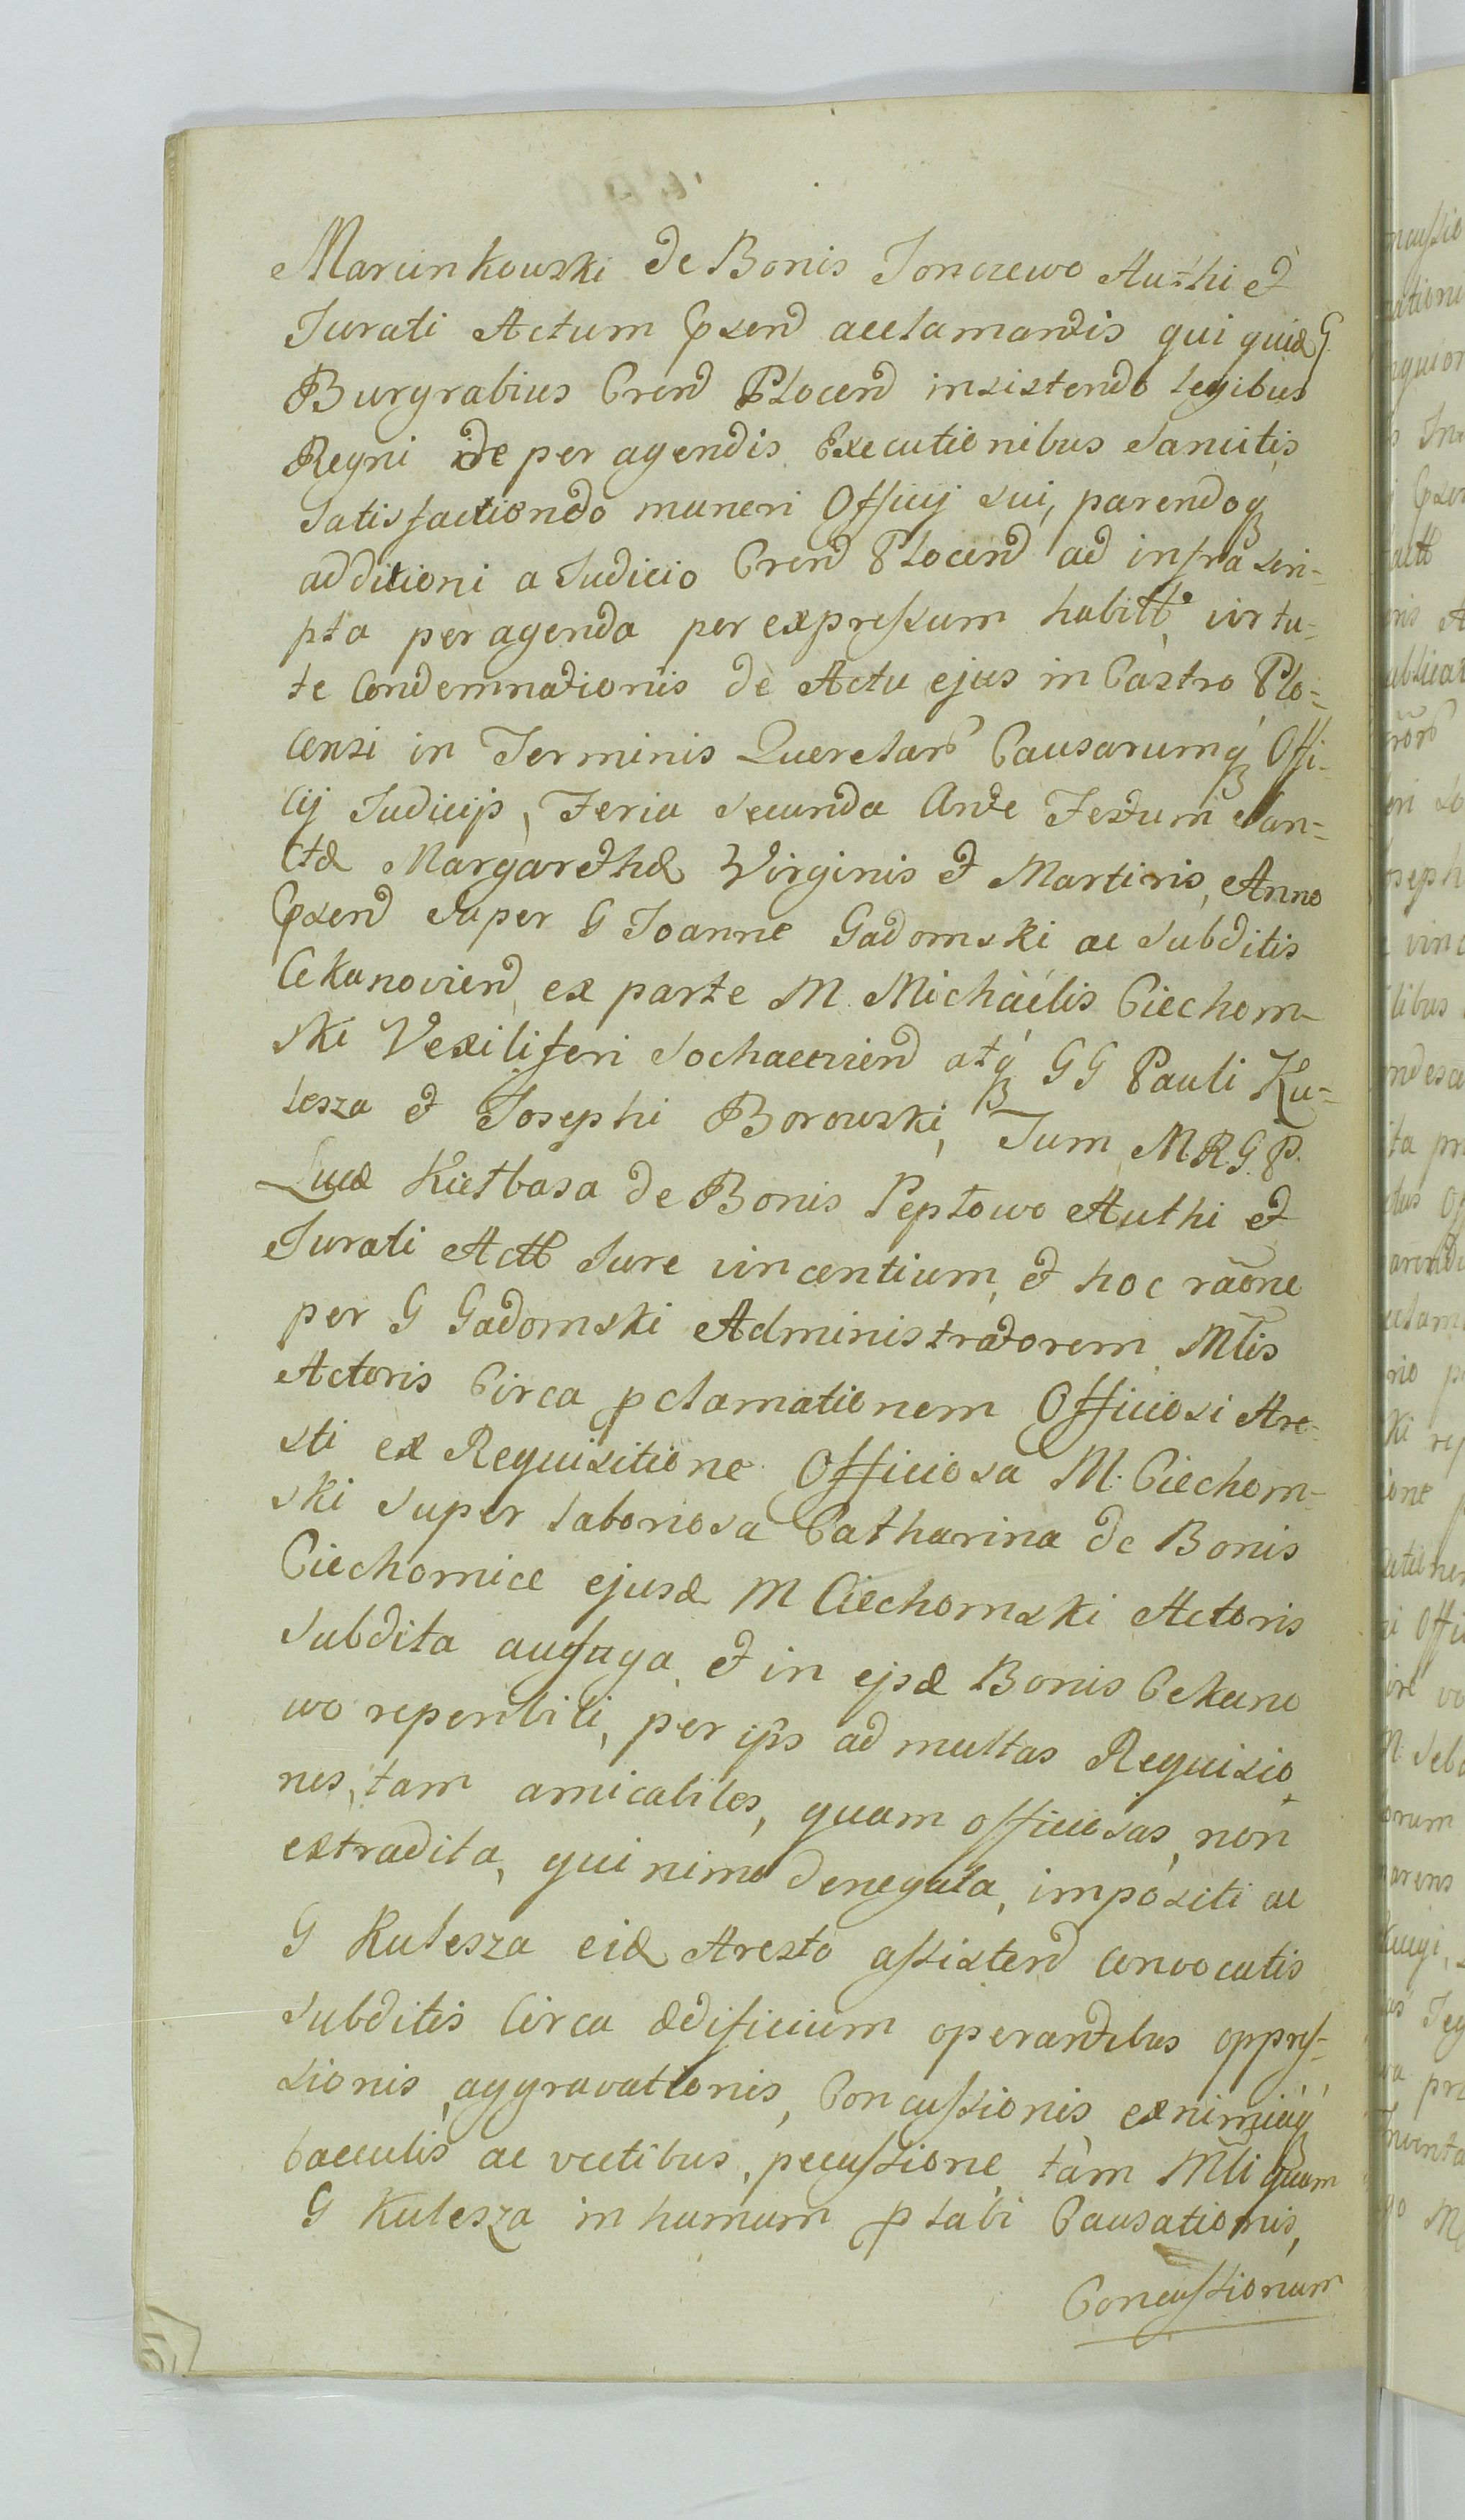 Marcinkowski de Bonis Jonczewo Authi et
Jurati Actum Pnsend acclamandis qui quid G
Burgrabius Crend Plocend insistendo Legibus
Regni de peragendis Executionibus Sancitis
Satisfactiondo muneri Officij sui, parendoq
additioni a Judicio Crend Plocend ad infra scri-
pta peragenda per expressum habitt virtu-
te Condemnationis de Actu ejus in Castro Plo-
censi in Terminis Querelarū Causarumq Offi-
cij Judicijs, Feria secunda Ante Festum San-
ctæ Margarethæ Virginis et Martiris, Anno
Pnsend super G Joanne Gadomski ac subditis
Cekanoviend ex parte M. Michaelis Ciechom-
ski Vexiliferi Sochaczeviend atq GG Pauli Ku-
lesza et Josephi Borowski, Tum M.R.G.P.
Lucæ Kiełbasa de Bonis Pepłowo Authi et
Jurati Actt Jure vincentium, et hoc raōne
per G Gadomski Administratorem Mlis
Actoris Circa pclamationem Officiosi Are-
sti ex Requisitione Officiosa M. Ciechom-
ski super laboriosa Catharina de Bonis
Ciechomice ejusd M Ciechomski Actoris
subdita aufuga et in ejsd Bonis Cekano
wo reperibili, per ips ad multas Requisio
nes, tam amicabiles, quam officiosas, non
extradita, qui nimo denegata, impositi ac
G Kulesza eid Aresto assistend convocatis
subditis Circa ædificium operantibus oppres-
sionis, aggravationis, Concussionis ex nimiaq
bacculis ac vectibus, pecussione, tàm Mli quam
G Kulesza in humum plabi Causationis,
Concussionum